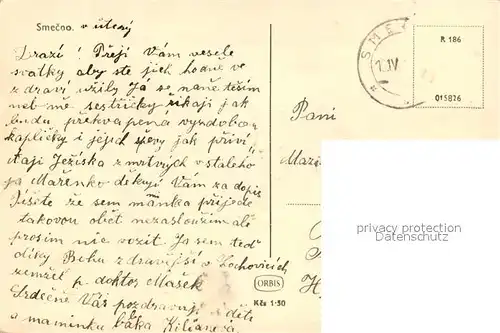 Smečno. v úterý
Drazí! Přeji Vám vesele
svatky aby ste jich hodně ve
zdraví užily Ja se na ně těším
neb mě sestřičky řikají jak
budu překvapená vyzdobou
kapličky i jejich zpěvy jak přiví
tají Ježíska z mrtvých vstaleho
Mařenko děkuji Vám za dopis
Pišete že sem maminka přijede
takovou obět nezasloužím ale
prosím nic vozit Ja sem teď
díky Bohu zdravější v Lochovicích
zemřel p. doktor Mašek
Srdečně Vás pozdravuji i děti
a maminku babka Kiliánová
SME
7. IV
R 186
015826
Paní
Mari
ORBIS
Kčs 1·50
privacy protection
Datenschutz